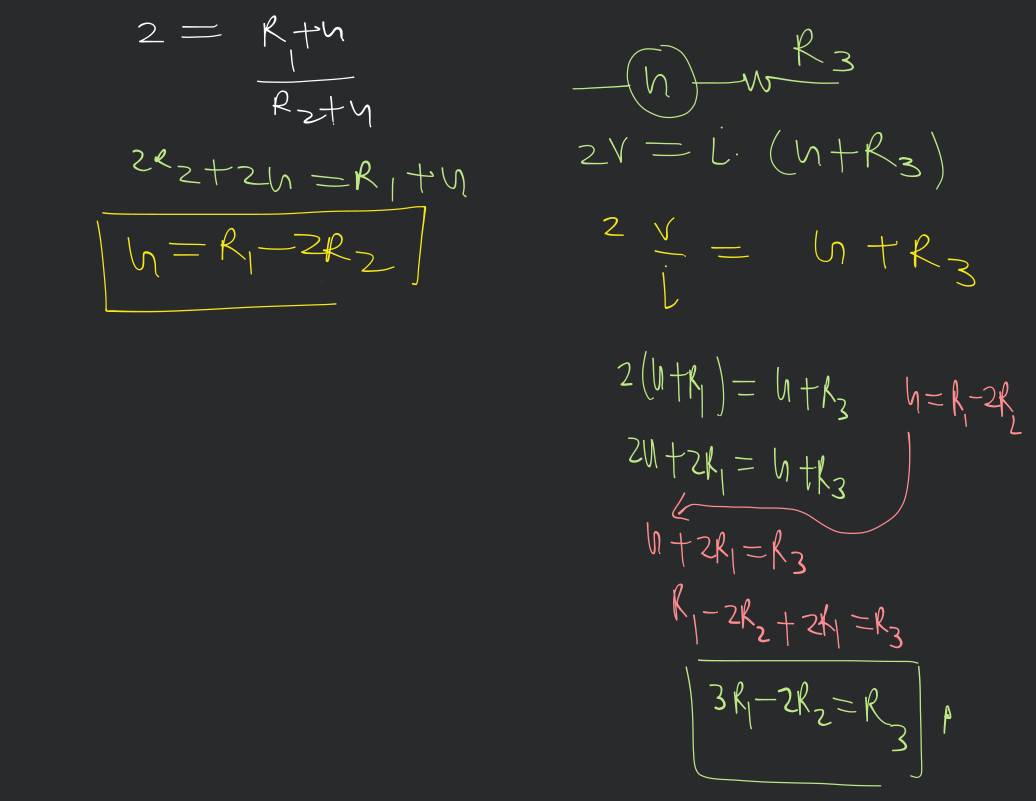 2 = R₁+h / R₂+h
2R₂+2h = R₁+h
h = R₁-2R₂
h R₃
2V = i. (h+R₃)
2 V/i = h + R₃
2(h+R₁) = h+R₃
h = R₁-2R₂
2h+2R₁ = h+R₃
h+2R₁ = R₃
R₁-2R₂+2R₁ = R₃
3R₁-2R₂ = R₃